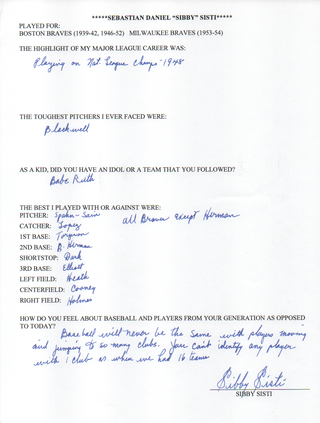 *****SEBASTIAN DANIEL "SIBBY" SISTI*****
PLAYED FOR:
BOSTON BRAVES (1939-42, 1946-52) MILWAUKEE BRAVES (1953-54)
THE HIGHLIGHT OF MY MAJOR LEAGUE CAREER WAS:
Playing on Nat League Champs - 1948
THE TOUGHEST PITCHERS I EVER FACED WERE:
Blackwell
AS A KID, DID YOU HAVE AN IDOL OR A TEAM THAT YOU FOLLOWED?
Babe Ruth
THE BEST I PLAYED WITH OR AGAINST WERE:
PITCHER: Spahn - Sain all Braves except Herman
CATCHER: Lopez
1ST BASE: Torgeson
2ND BASE: B. Herman
SHORTSTOP: Dark
3RD BASE: Elliott
LEFT FIELD: Heath
CENTERFIELD: Cooney
RIGHT FIELD: Holmes
HOW DO YOU FEEL ABOUT BASEBALL AND PLAYERS FROM YOUR GENERATION AS OPPOSED
TO TODAY?
Baseball will never be the same with players moving
and jumping to so many clubs. You can't identify any player
with 1 club as when we had 16 teams
Sibby Sisti
SIBBY SISTI